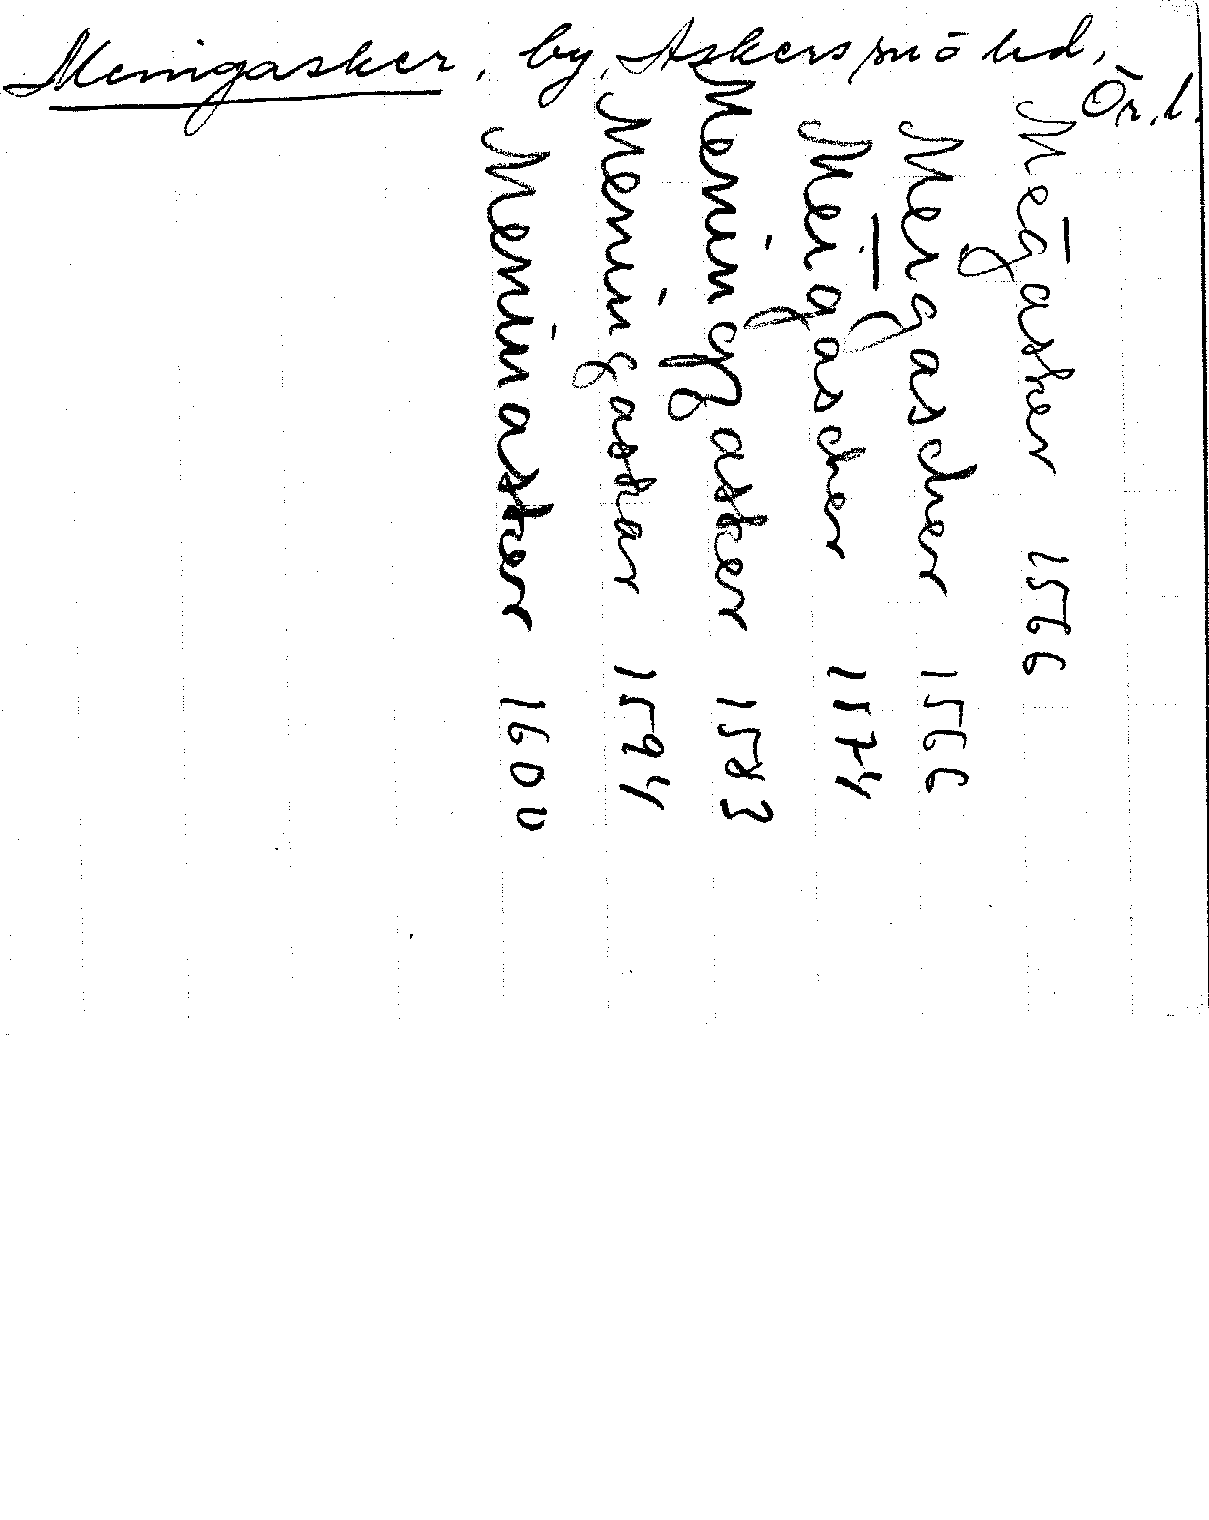 Meningasker, by, Askers sn o hd,
Ör. l.
Megasker 1566
Mergascher 1566
Mergascher 1574
Meningasker 1583
Meningaskar 1594
Meninasker 1600